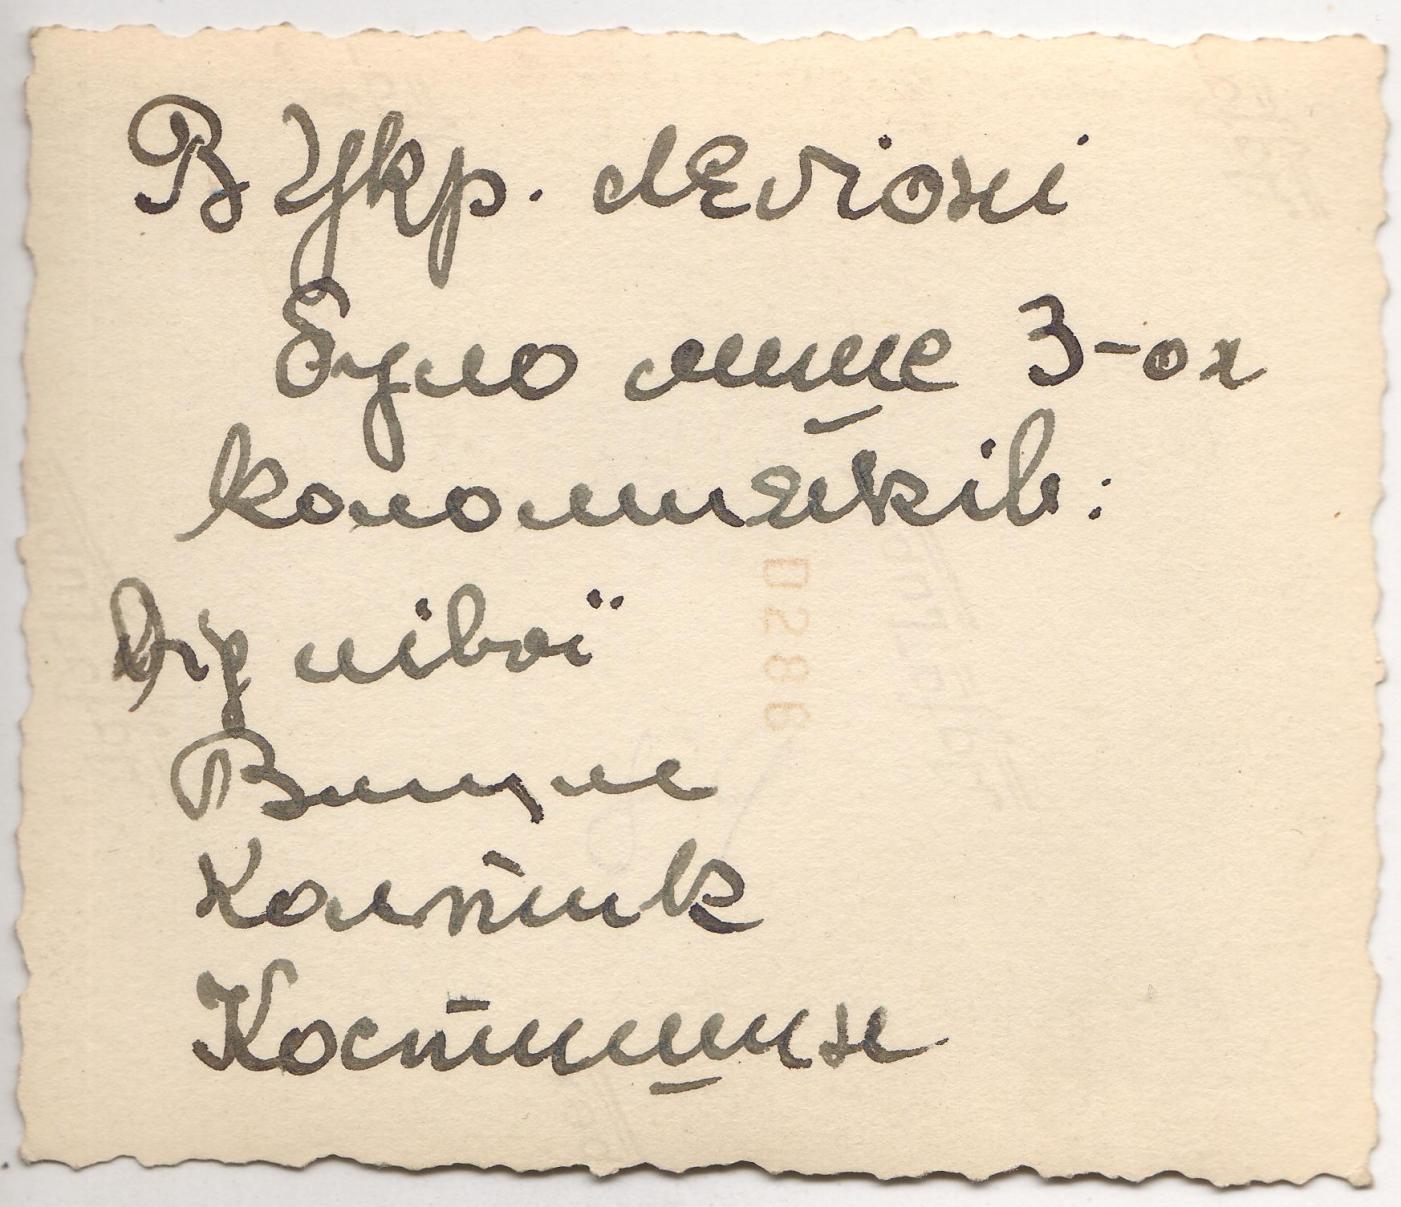 В Укр. лєґіоні
було лише 3-ох
коломияків:
від лівої
Вишле
Колтик
Костишин
0286